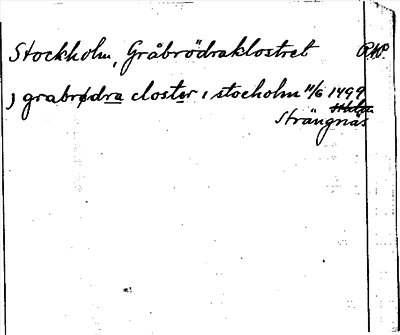 Stockholm, Gråbrödraklostret P.W.P.
j grabrødra closter i stocholm 11/6 1499
Sthlm
Strängnäs